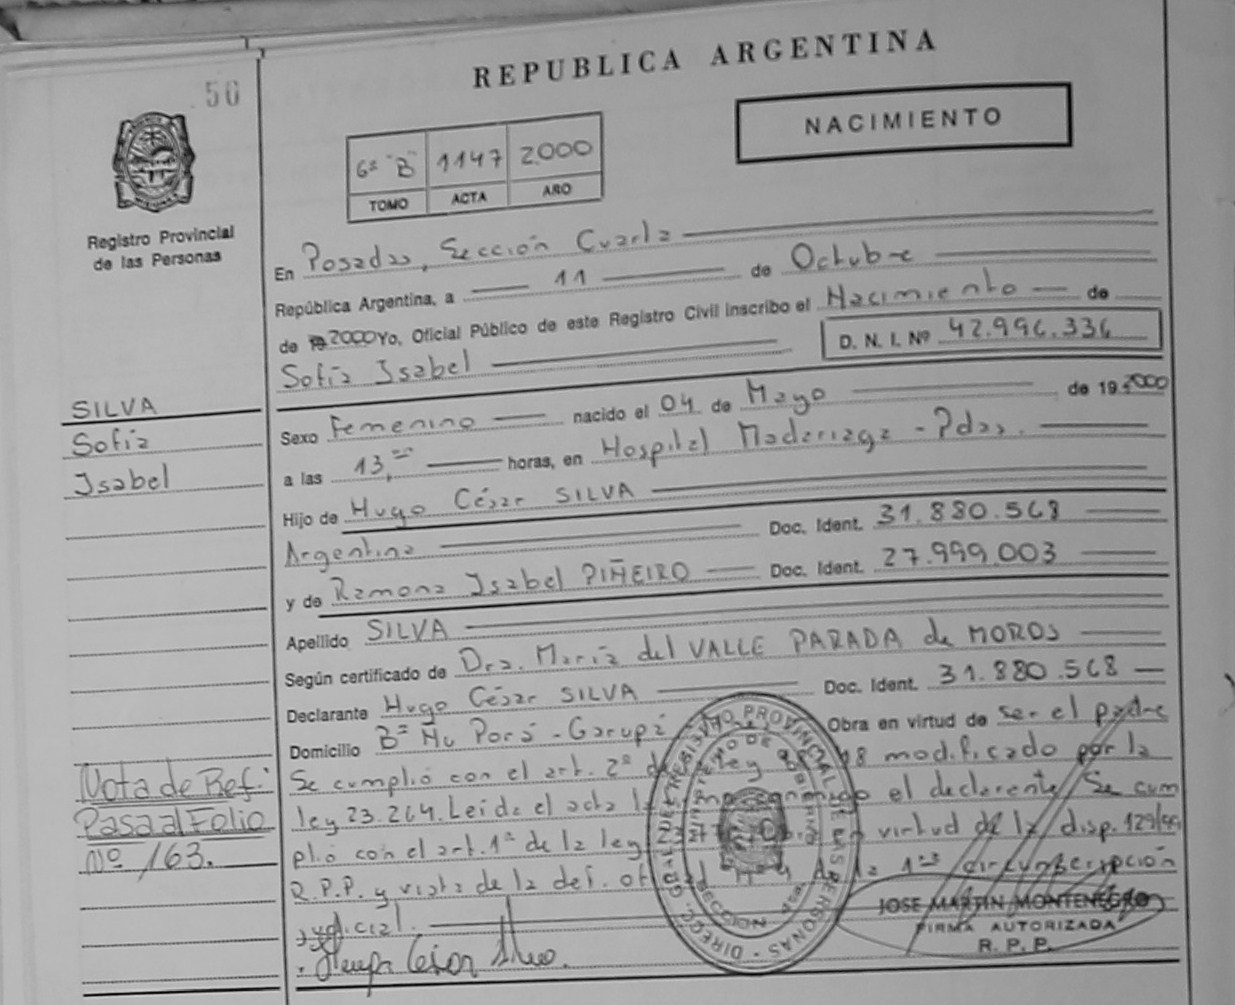 REPUBLICA ARGENTINA
50
NACIMIENTO
6º "B" 1147 2000
TOMO ACTA AÑO
Registro Provincial
de las Personas
En Posadas, Sección Cuarta
República Argentina, a 11 de Octubre
de 2000 Yo, Oficial Público de este Registro Civil inscribo el Nacimiento de
Sofía Isabel D. N. I. Nº 42.996.336
SILVA
Sofía
Isabel
Sexo Femenino nacido el 04 de Mayo de 19 2000
a las 13, horas, en Hospital Madariaga - Pdas.
Hijo de Hugo César SILVA
Argentina Doc. Ident. 31.880.568
y de Ramona Isabel PIÑEIRO Doc. Ident. 27.999.003
Apellido SILVA
Según certificado de Dra. María del VALLE PARADA de MOROS
Declarante Hugo César SILVA Doc. Ident. 31.880.568
Domicilio Bº Ñu Porá - Garupá Obra en virtud de ser el padre
Se cumplió con el art. 2º de ley 18 modificado por la
ley 23.264. Leída el acta el declarante Se cum
plió con el art. 1º de la ley en virtud de la disp. 129/99
R.P.P. y vista de la def. of Nº 4 de la 1ra circunscripción
judicial.
Nota de Ref:
Pasa al Folio
Nº 163.
DIRECC. GRAL. DEL REGISTRO PROVINCIAL DE LAS PERSONAS
MINISTERIO DE GOBIERNO
SECCION
JOSE MARTIN MONTENEGRO
FIRMA AUTORIZADA
R. P. P.